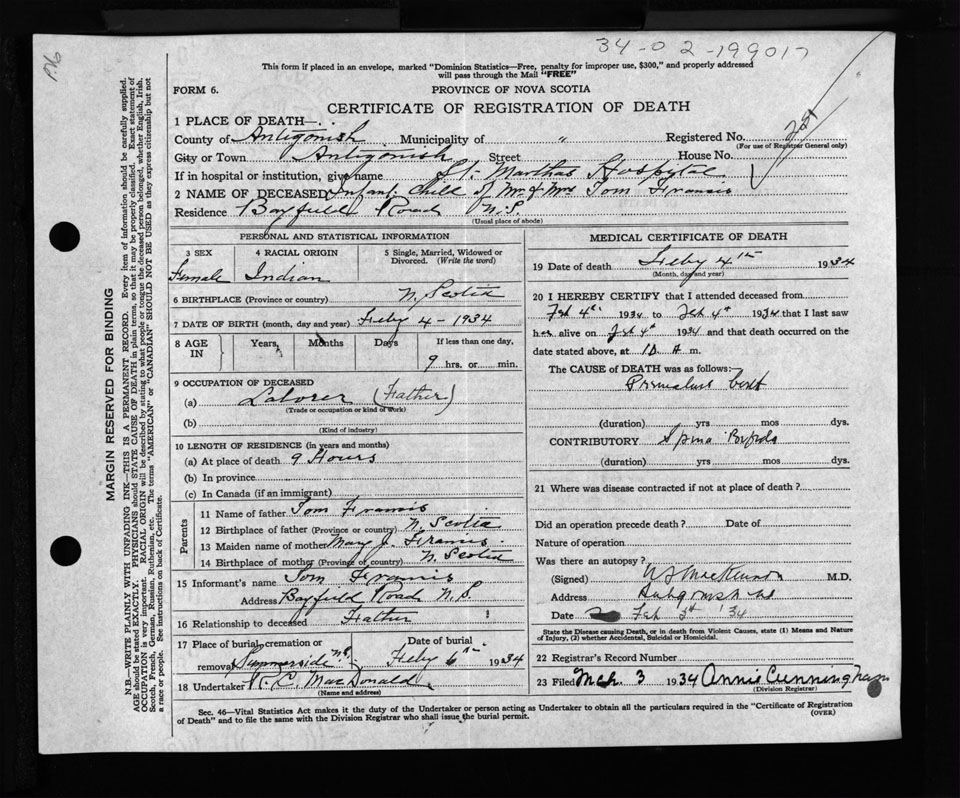 34-02-199017
P.76
This form if placed in an envelope, marked "Dominion Statistics—Free, penalty for improper use, $300," and properly addressed
will pass through the Mail "FREE"
FORM 6.
PROVINCE OF NOVA SCOTIA
CERTIFICATE OF REGISTRATION OF DEATH
1 PLACE OF DEATH—
County of Antigonish Municipality of " Registered No.
(For use of Registrar General only)
City or Town Antigonish Street House No.
If in hospital or institution, give name St. Marthas Hospytal
2 NAME OF DECEASED Infant Child of Mr. & Mrs Tom Francis
Residence Bayfield Road N.S.
(Usual place of abode)
PERSONAL AND STATISTICAL INFORMATION
3 SEX 4 RACIAL ORIGIN 5 Single, Married, Widowed or
Divorced. (Write the word)
Female Indian
6 BIRTHPLACE (Province or country) N. Scotia
7 DATE OF BIRTH (month, day and year) Feby 4 - 1934
8 AGE IN Years, Months Days If less than one day,
9 hrs. or min.
9 OCCUPATION OF DECEASED
(a) Laborer (Father)
(Trade or occupation or kind of work)
(b)
(Kind of industry)
10 LENGTH OF RESIDENCE (in years and months)
(a) At place of death 9 Hours
(b) In province
(c) In Canada (if an immigrant)
Parents
11 Name of father Tom Francis
12 Birthplace of father (Province or country) N. Scotia
13 Maiden name of mother Mary J. Francis.
14 Birthplace of mother (Province or country) N. Scotia
15 Informant's name Tom Francis
Address Bayfield Road N.S.
16 Relationship to deceased Father
17 Place of burial, cremation or Date of burial
removal Summerside N.S. Feby 6th 1934
18 Undertaker R. C. MacDonald
(Name and address)
MEDICAL CERTIFICATE OF DEATH
19 Date of death Feby 4th 1934
(Month, day and year)
20 I HEREBY CERTIFY that I attended deceased from
Feb 4th 1934 to Feb 4th 1934 that I last saw
her alive on Feb 4th 1934 and that death occurred on
date stated above, at 10 A m.
The CAUSE of DEATH was as follows:
Premature birth
(duration) yrs mos dys.
CONTRIBUTORY Spina Bifida
(duration) yrs mos dys.
21 Where was disease contracted if not at place of death?
Did an operation precede death? Date of
Nature of operation
Was there an autopsy?
(Signed) MacKinnon M.D.
Address Antigonish N.S.
Date Feb '34
State the Disease causing Death, or in death from Violent Causes, state (1) Means and Nature
of Injury, (2) whether Accidental, Suicidal or Homicidal.
22 Registrar's Record Number
23 Filed Mch. 3 1934 Annie Cunningham
(Division Registrar)
Sec. 46—Vital Statistics Act makes it the duty of the Undertaker or person acting as Undertaker to obtain all the particulars required in the "Certificate of Registration
of Death" and to file the same with the Division Registrar who shall issue the burial permit.
(OVER)
MARGIN RESERVED FOR BINDING
N.B.—WRITE PLAINLY WITH UNFADING INK—THIS IS A PERMANENT RECORD. Every item of information should be carefully supplied.
AGE should be stated EXACTLY. PHYSICIANS should STATE CAUSE OF DEATH in plain terms, so that it may be properly classified. Exact statement of
OCCUPATION is very important. RACIAL ORIGIN will be described by stating to what people or tongue the deceased person belonged, whether English, Irish,
Scotch, French, German, Russian, Ruthenian, etc. The terms "AMERICAN" or "CANADIAN" SHOULD NOT BE USED as they express citizenship but not
a race or people. See instructions on back of Certificate.